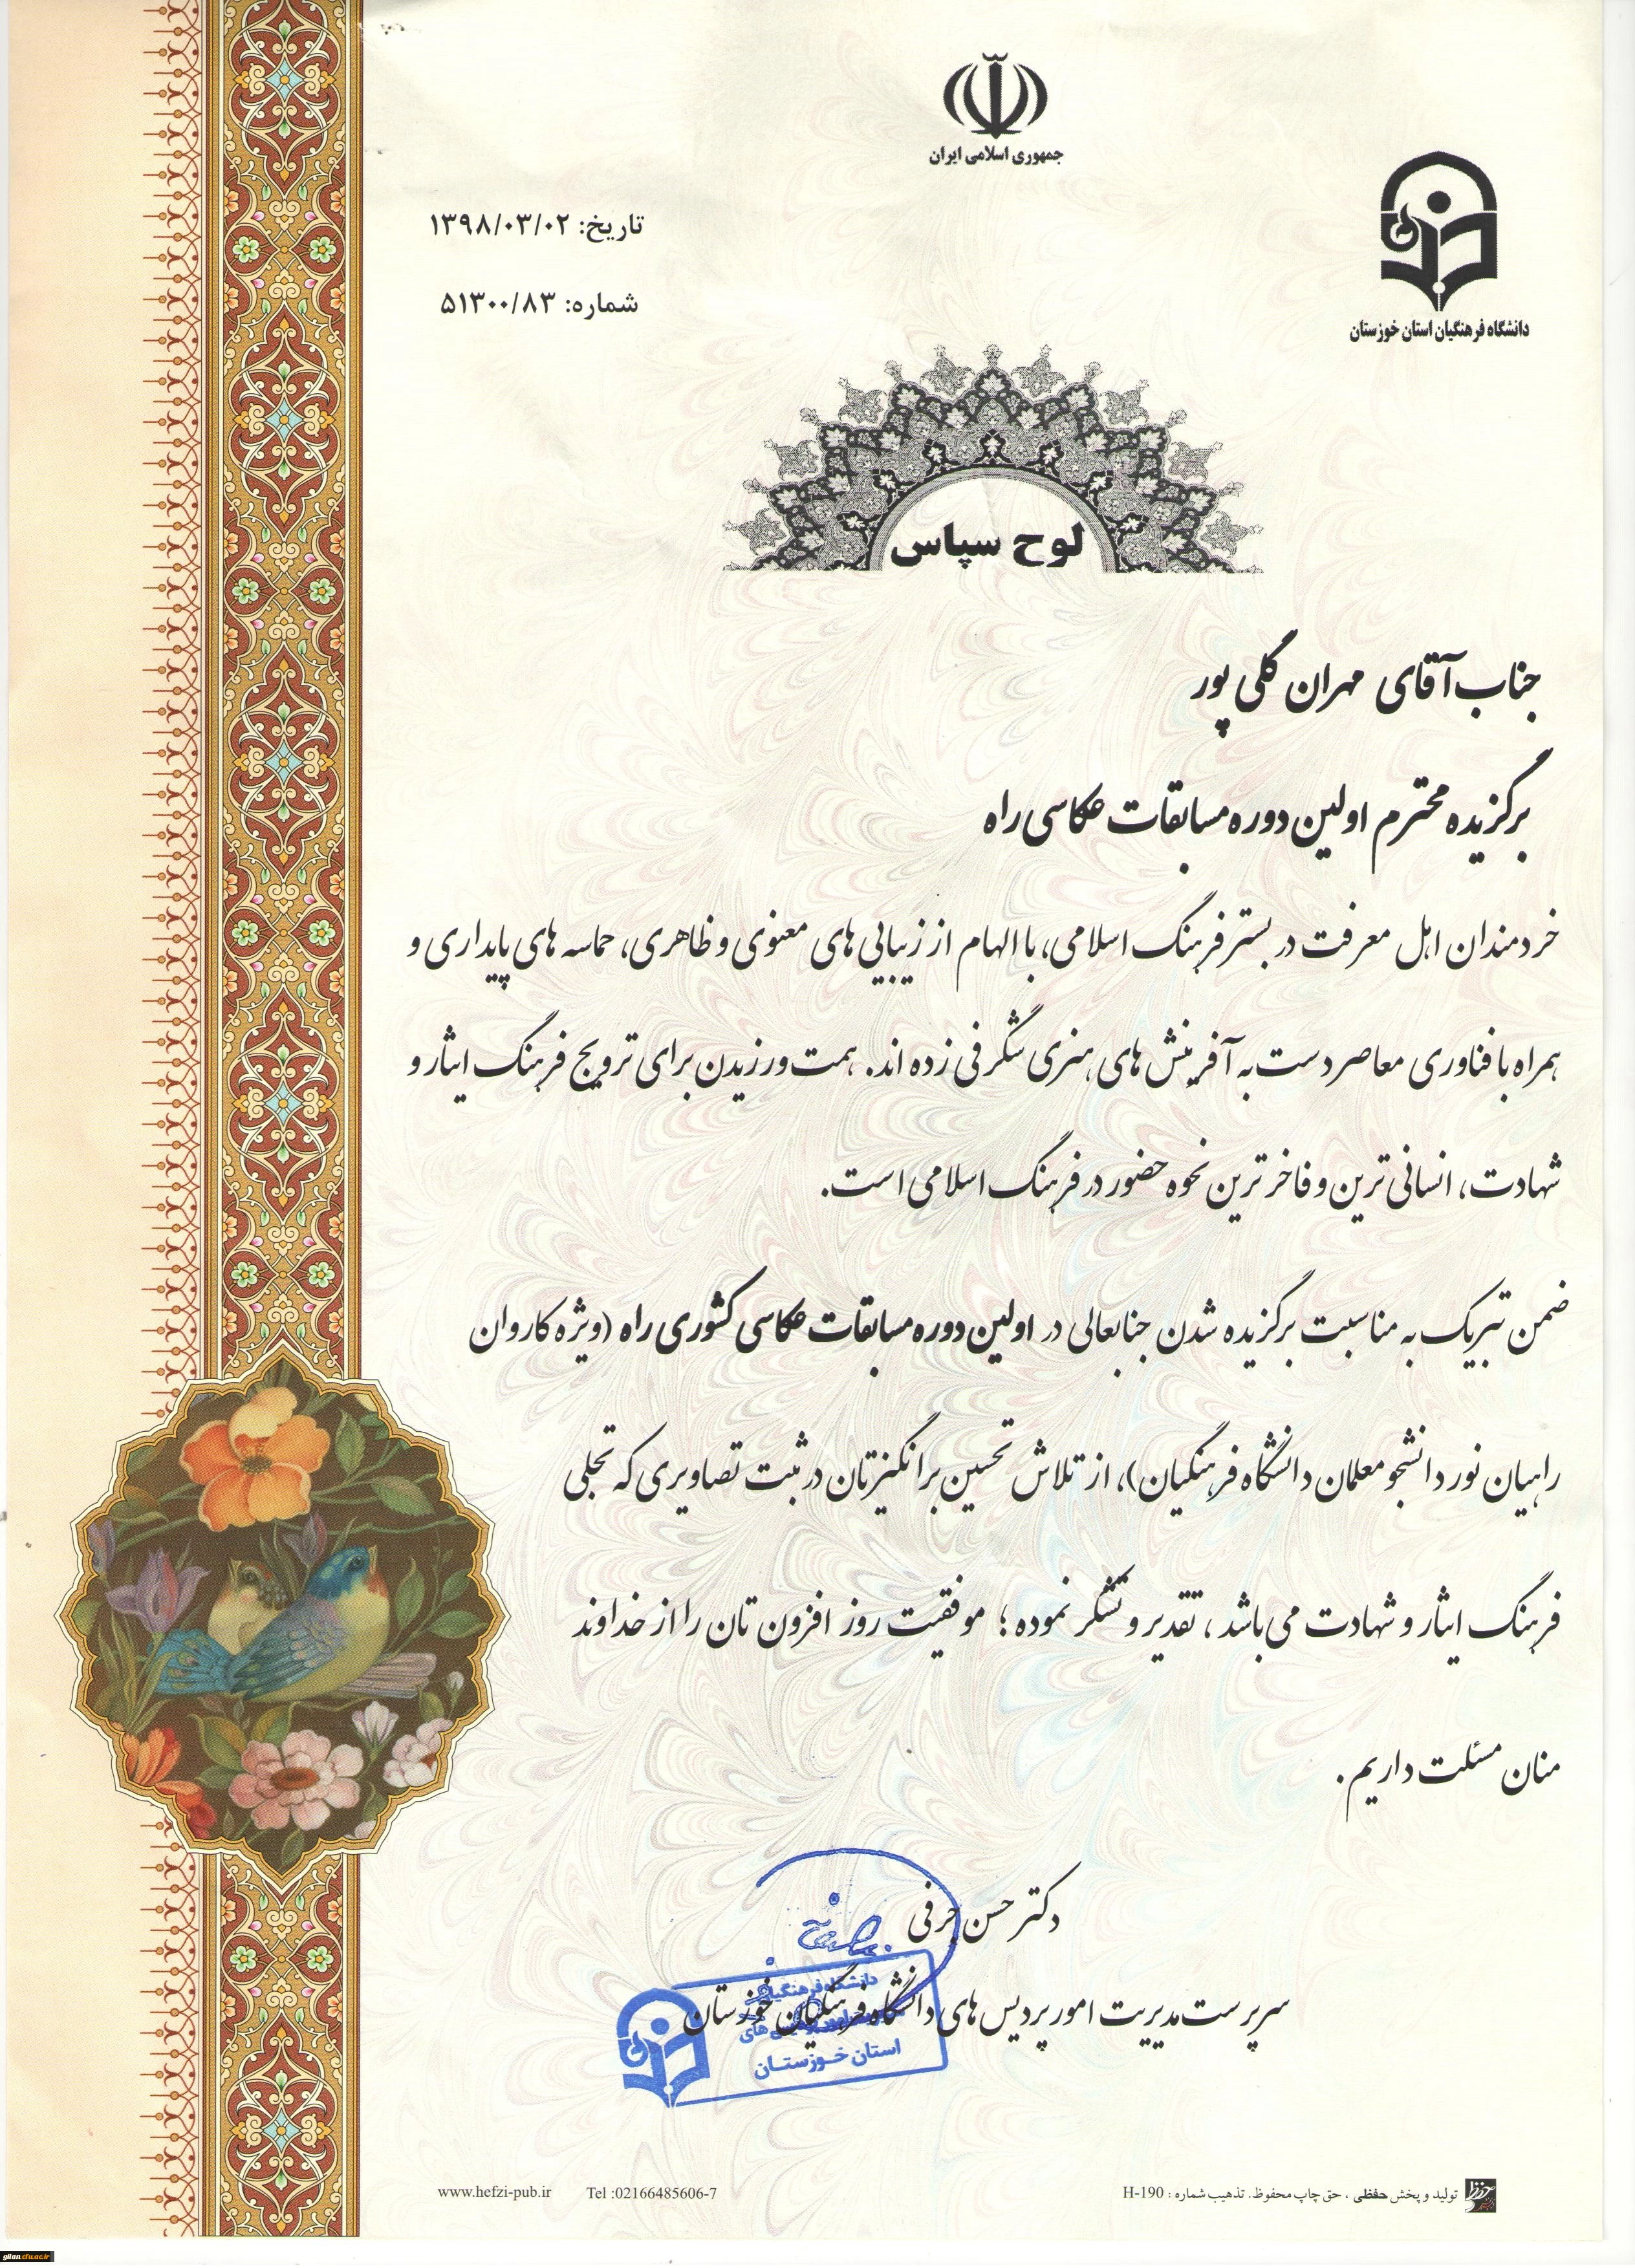 جمهوری اسلامی ایران
دانشگاه فرهنگیان استان خوزستان
تاریخ: ۱۳۹۸/۰۳/۰۲
شماره: ۵۱۳۰۰/۸۳
لوح سپاس
جناب آقای مهران گلی پور
برگزیده محترم اولین دوره مسابقات عکاسی راه
خردمندان اهل معرفت در بستر فرهنگ اسلامی، با الهام از زیبایی های معنوی و ظاهری، حماسه های پایداری و
همراه با فناوری معاصر دست به آفرینش های هنری شگرفی زده اند. همت ورزیدن برای ترویج فرهنگ ایثار و
شهادت، انسانی ترین و فاخر ترین نحوه حضور در فرهنگ اسلامی است.
ضمن تبریک به مناسبت برگزیده شدن جنابعالی در اولین دوره مسابقات عکاسی کشوری راه (ویژه کاروان
راهیان نور دانشجو معلمان دانشگاه فرهنگیان)، از تلاش تحسین برانگیزتان در ثبت تصاویری که تجلی
فرهنگ ایثار و شهادت می باشد، تقدیر و تشکر نموده؛ موفقیت روز افزون تان را از خداوند
منان مسئلت داریم.
دکتر حسن حرفی
سرپرست مدیریت امور پردیس های دانشگاه فرهنگیان خوزستان
دانشگاه فرهنگیان
استان خوزستان
www.hefzi-pub.ir Tel :02166485606-7
تولید و پخش حفظی ، حق چاپ محفوظ. تذهیب شماره : H-190
gilan.cfu.ac.ir